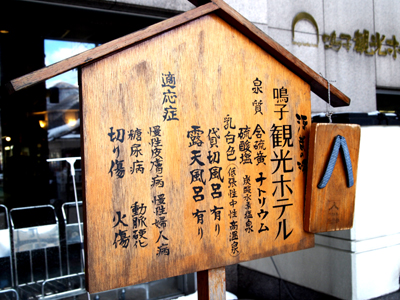 鳴子観光ホ
鳴子観光ホテル
泉質 含硫黄-ナトリウム
硫酸塩 炭酸水素塩泉
乳白色(低張性中性高温泉)
貸切風呂有り
露天風呂有り
適応症
慢性皮膚病 慢性婦人病
糖尿病 動脈硬化
切り傷 火傷